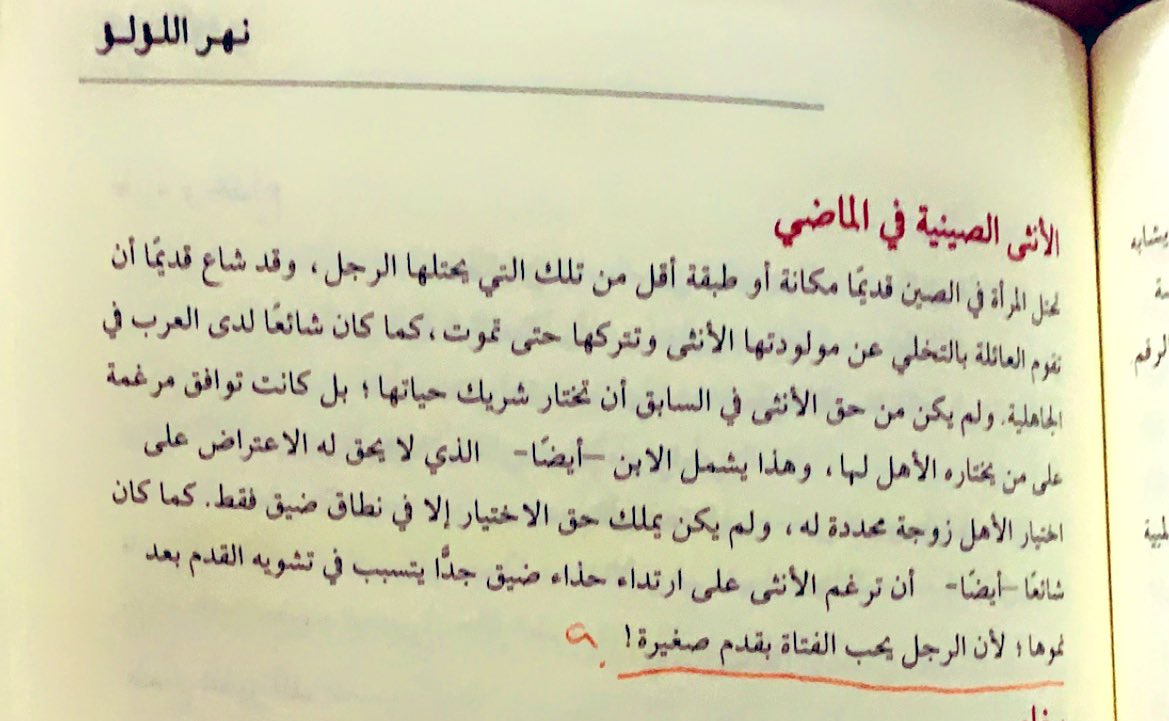 نهر اللولو
الأنثى الصينية في الماضي
تحتل المرأة في الصين قديمًا مكانة أو طبقة أقل من تلك التي يحتلها الرجل، وقد شاع قديمًا أن
تقوم العائلة بالتخلي عن مولودتها الأنثى وتتركها حتى تموت، كما كان شائعًا لدى العرب في
الجاهلية. ولم يكن من حق الأنثى في السابق أن تختار شريك حياتها؛ بل كانت توافق مرغمة
على من يختاره الأهل لها، وهذا يشمل الابن –أيضًا- الذي لا يحق له الاعتراض على
اختيار الأهل زوجة محددة له، ولم يكن يملك حق الاختيار إلا في نطاق ضيق فقط. كما كان
شائعًا –أيضًا- أن ترغم الأنثى على ارتداء حذاء ضيق جدًّا يتسبب في تشويه القدم بعد
نموها؛ لأن الرجل يحب الفتاة بقدم صغيرة!
الرقم